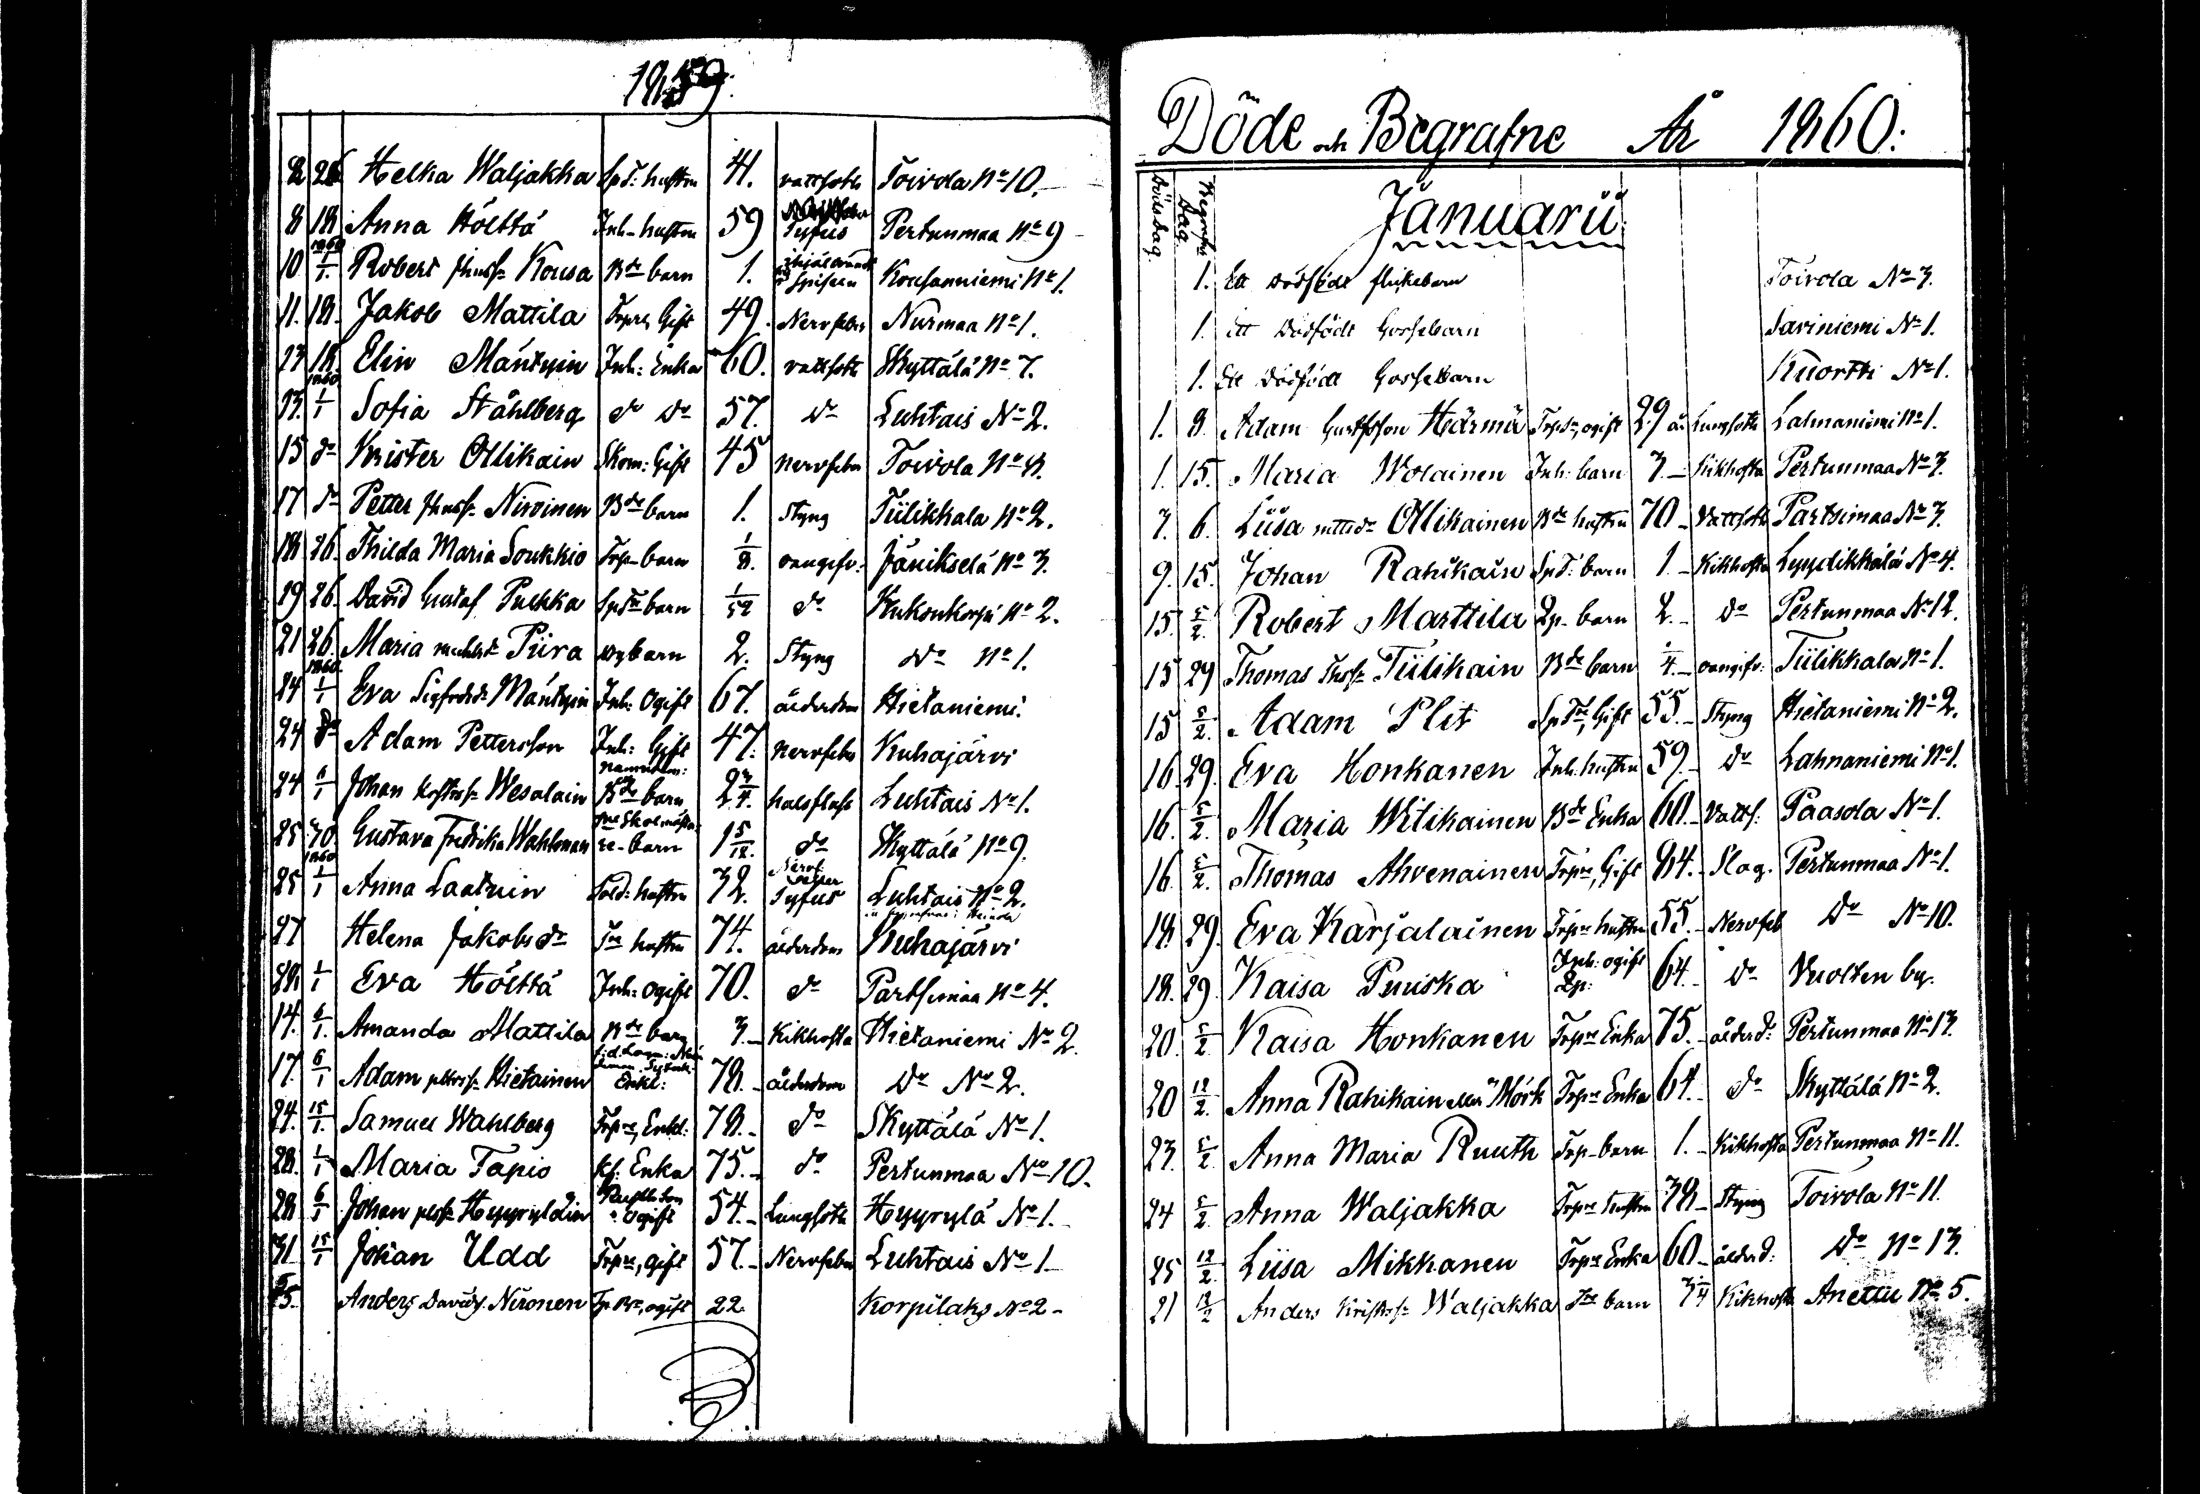 1859.
8 26 Helka Waljakka SpT: hustru 41. vattsot Toivola No 10.
8 18 Anna Höltta Inh- hustru 59 Tyfus Pertunmaa No 9
10 1860 1/1. Robert Kousa Bde barn 1. Kousanniemi No 1.
11. 18. Jakob Mattila Torp Gift 49. Nervfeber Nurmaa No 1.
13 18. Elin Mäntyin Inh: Enka 60. vattsot Skyttälä No 7.
13. 1860 1/1 Sofia Ståhlberg do do 57. do Luhtais No 2.
15 do Krister Ollikain Skom: Gift 45 nervfeber Toivola No 8.
17 do Petter Nirvinen Bde barn 1. Styng Tiilikkala No 2.
18 26. Thilda Maria Soukkio Torp- barn 1/8. oangifv: Jänikselä No 3.
19 26. David Gustaf Pulkka SpTre barn 1/52 do Kukonkorpi No 2.
21 26. Maria Piira barn 2. Styng do No 1.
24 1860 1/1 Eva Sigfredsdr Mäntyin Inh: Ogift 67. ålderdom Hietaniemi.
24 do Adam Pettersson Inh: Gift 47. nervfeber Kuhajärvi
24 6/1 Johan Wesalain Bde barn 2 3/4. halsfluss Luhtais No 1.
25 30. Gustava Fredrika Wahlman Skolmästare- barn 1 5/12. do Skyttälä No 9.
25 1860 1/1 Anna Laatuin Sold: hustru 32. Nerv feber Tyfus Luhtais No 2.
27 Helena Jakobsdr Tre hustru 74. ålderdom Kuhajärvi
28 1/1 Eva Höltta Inh: ogift 70. do Partsimaa No 4.
14. 6/1. Amanda Mattila Bde barn 3. Kikhosta Hietaniemi No 2.
17. 6/1 Adam Hietainen Enkl: 78. ålderdom do No 2.
24. 15/1. Samuel Wahlberg Torpre, Enkl: 78. do Skyttälä No 1.
28. 1/1 Maria Tapio Enka 75. do Pertunmaa No 10.
28 6/1 Johan Hyyryläin ogift 54. Lungsot Hyyrylä No 1.
31 15/1 Johan Udd Torpre, gift 57. Nervfeber Luhtais No 1
25. Anders Davids. Nironen ogift 22. Korpilaks No 2-
Döde och Begrafne År 1860:
Dödsdag. Begrafn Dag.
Januarii.
1. Ett dödfödt flickebarn Toivola No 3.
1. Ett dödfödt Gossebarn Saviniemi No 1.
1. Ett dödfödt Gossebarn Kuortti No 1.
1. 8. Adam Gustafsson Härmä ogift 29 år Lungsot Lahnaniemi No 1.
1. 15. Maria Wolainen Inh: barn 3. Kikhosta Pertunmaa No 3.
3. 6. Liisa Ollikainen Bde hustru 70 Vattsot Partsimaa No 3.
9. 15. Johan Rahikain SpT: barn 1. Kikhosta Lyydikkälä No 4.
15. 5/2. Robert Marttila Lp- barn 2. do Pertunmaa No 12.
15 29 Thomas Thsf: Tiilikain Bde barn 1/4. oangifv: Tiilikkala No 1.
15 5/2. Adam Plit SpTre, Gift 55. Styng Hietaniemi No 2.
16 29. Eva Honkanen Inh. hustru 59. do Lahnaniemi No 1.
16. 5/2. Maria Witikainen Bde Enka 60. Vatts: Paasola No 1.
16. 5/2. Thomas Ahvenainen Torpre, Gift 84. Slag. Pertunmaa No 1.
18. 29. Eva Karjalainen Torpre hustru 55. Nervfeb do No 10.
18. 29. Kaisa Puuska Inh: ogift Lp: 64. do Vuolten by.
20. 5/2. Kaisa Honkanen Torpre Enka 75. ålderd: Pertunmaa No 13.
20 12/2. Anna Rahikain eller Mörk Torpre Enka 64. do Skyttälä No 2.
23. 5/2. Anna Maria Ruuth Torp- barn 1. Kikhosta Pertunmaa No 11.
24 5/2. Anna Waljakka Torpre hustru 38 Styng Toivola No 11.
25 12/2. Liisa Mikkanen Torpre Enka 60 ålderd: do No 13.
21 12/2 Anders Waljakka Tre barn 3/4 Kikhosta Anettu No 5.